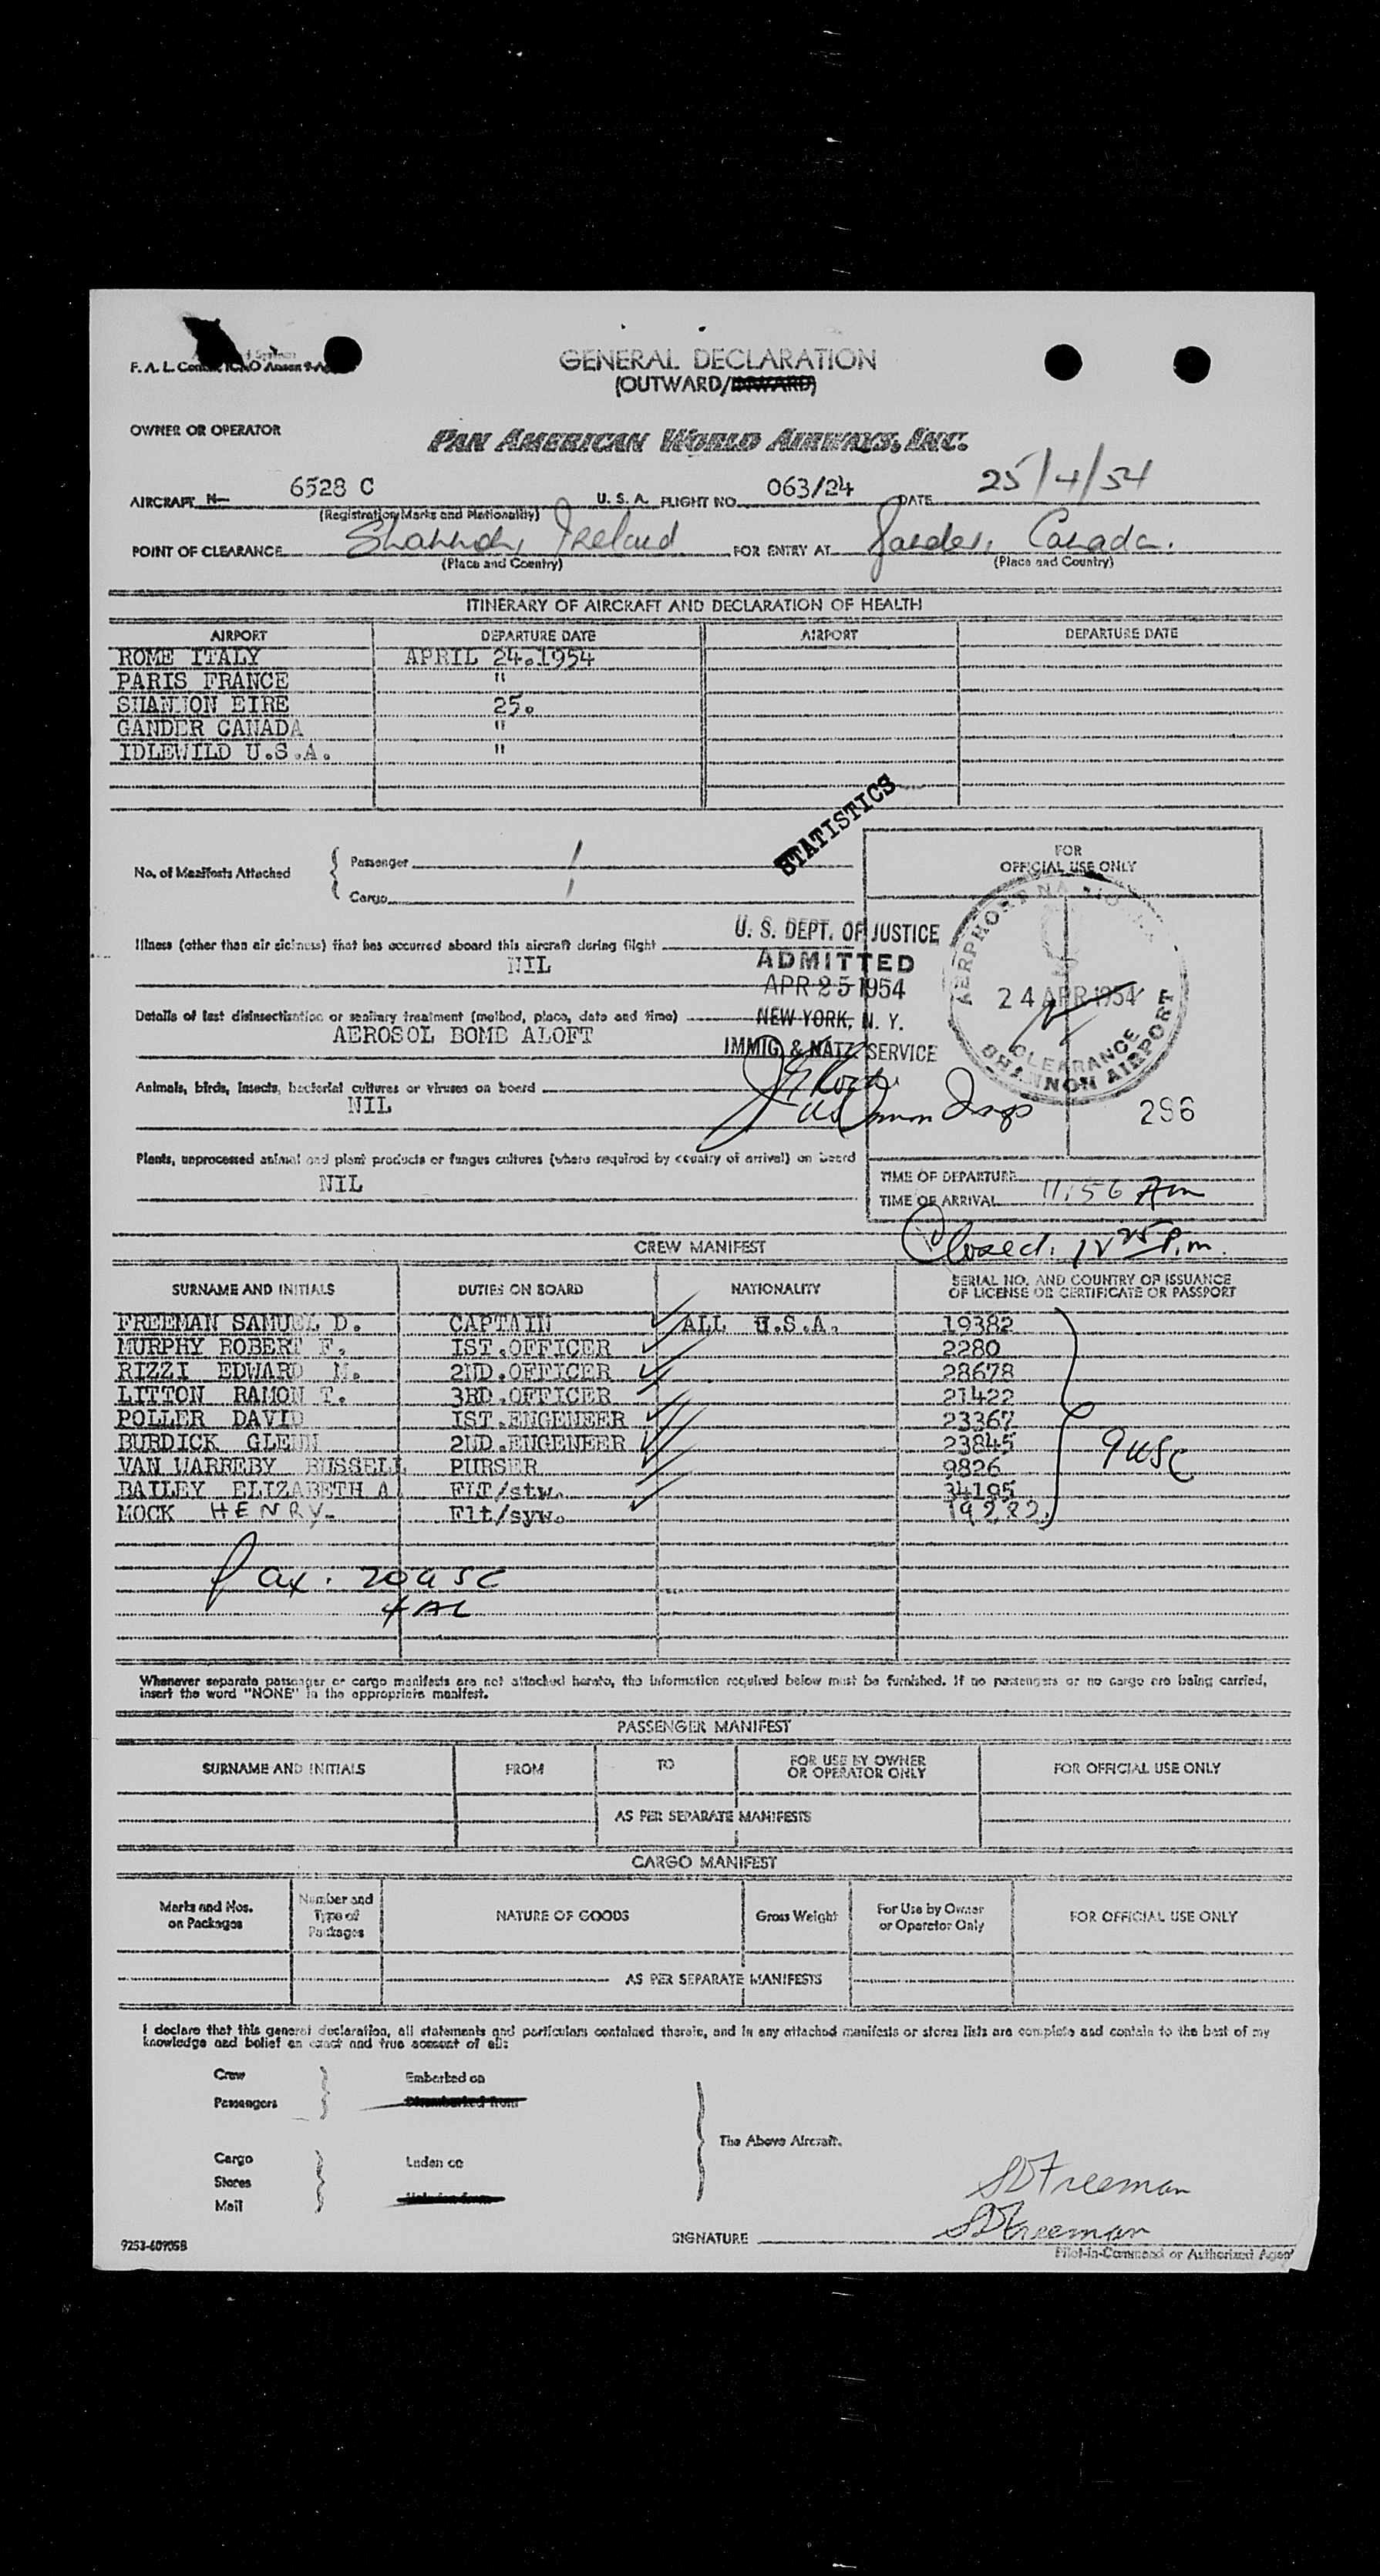 GENERAL DECLARATION
(OUTWARD/INWARD)
OWNER OR OPERATOR
PAN AMERICAN WORLD AIRWAYS, INC.
AIRCRAFT N- 6528 C U. S. A. FLIGHT NO. 063/24 DATE 25/4/54
(Registration Marks and Nationality)
POINT OF CLEARANCE Shannon, Ireland FOR ENTRY AT Gander, Canada.
(Place and Country) (Place and Country)
ITINERARY OF AIRCRAFT AND DECLARATION OF HEALTH
AIRPORT DEPARTURE DATE AIRPORT DEPARTURE DATE
ROME ITALY APRIL 24.1954
PARIS FRANCE "
SHANNON EIRE 25.
GANDER CANADA "
IDLEWILD U.S.A. "
STATISTICS
No. of Manifests Attached
Passenger 1
Cargo 1
FOR
OFFICIAL USE ONLY
Illness (other than air sickness) that has occurred aboard this aircraft during flight
NIL
U. S. DEPT. OF JUSTICE
ADMITTED
APR 25 1954
NEW YORK, N. Y.
IMMIG & NATZ SERVICE
24 APR 1954
CLEARANCE
SHANNON AIRPORT
Details of last disinsectisation or sanitary treatment (method, place, date and time)
AEROSOL BOMB ALOFT
Animals, birds, insects, bacterial cultures or viruses on board
NIL
296
Plants, unprocessed animal and plant products or fungus cultures (where required by country of arrival) on board
NIL
TIME OF DEPARTURE
TIME OF ARRIVAL 11:56 Am
CREW MANIFEST
Closed. 12 25 P.m.
SURNAME AND INITIALS DUTIES ON BOARD NATIONALITY SERIAL NO. AND COUNTRY OF ISSUANCE
OF LICENSE OR CERTIFICATE OR PASSPORT
FREEMAN SAMUEL D. CAPTAIN ALL U.S.A. 19382
MURPHY ROBERT F. IST.OFFICER 2280
RIZZI EDWARD M. 2ND.OFFICER 28678
LITTON RAMON T. 3RD.OFFICER 21422
POLLER DAVID IST.ENGENEER 23367
BURDICK GLENN 2ND.ENGENEER 23845
VAN WARREBY RUSSELL PURSER 9826
BAILEY ELIZABETH A. FLT/stw. 34195
MOCK HENRY. Flt/syw. 19222
9 USC
Pax. 20 USC
4 AL
Whenever separate passenger or cargo manifests are not attached hereto, the information required below must be furnished. If no passengers or no cargo are being carried,
insert the word "NONE" in the appropriate manifest.
PASSENGER MANIFEST
SURNAME AND INITIALS FROM TO FOR USE BY OWNER
OR OPERATOR ONLY FOR OFFICIAL USE ONLY
AS PER SEPARATE MANIFESTS
CARGO MANIFEST
Marks and Nos.
on Packages Number and
Type of
Packages NATURE OF GOODS Gross Weight For Use by Owner
or Operator Only FOR OFFICIAL USE ONLY
AS PER SEPARATE MANIFESTS
I declare that this general declaration, all statements and particulars contained therein, and in any attached manifests or stores lists are complete and contain to the best of my
knowledge and belief an exact and true account of all:
Crew Embarked on
Passengers Disembarked from
The Above Aircraft.
Cargo Laden on
Stores
Mail
SDFreeman
SIGNATURE SDFreeman
Pilot-in-Command or Authorized Agent
9253-60905B